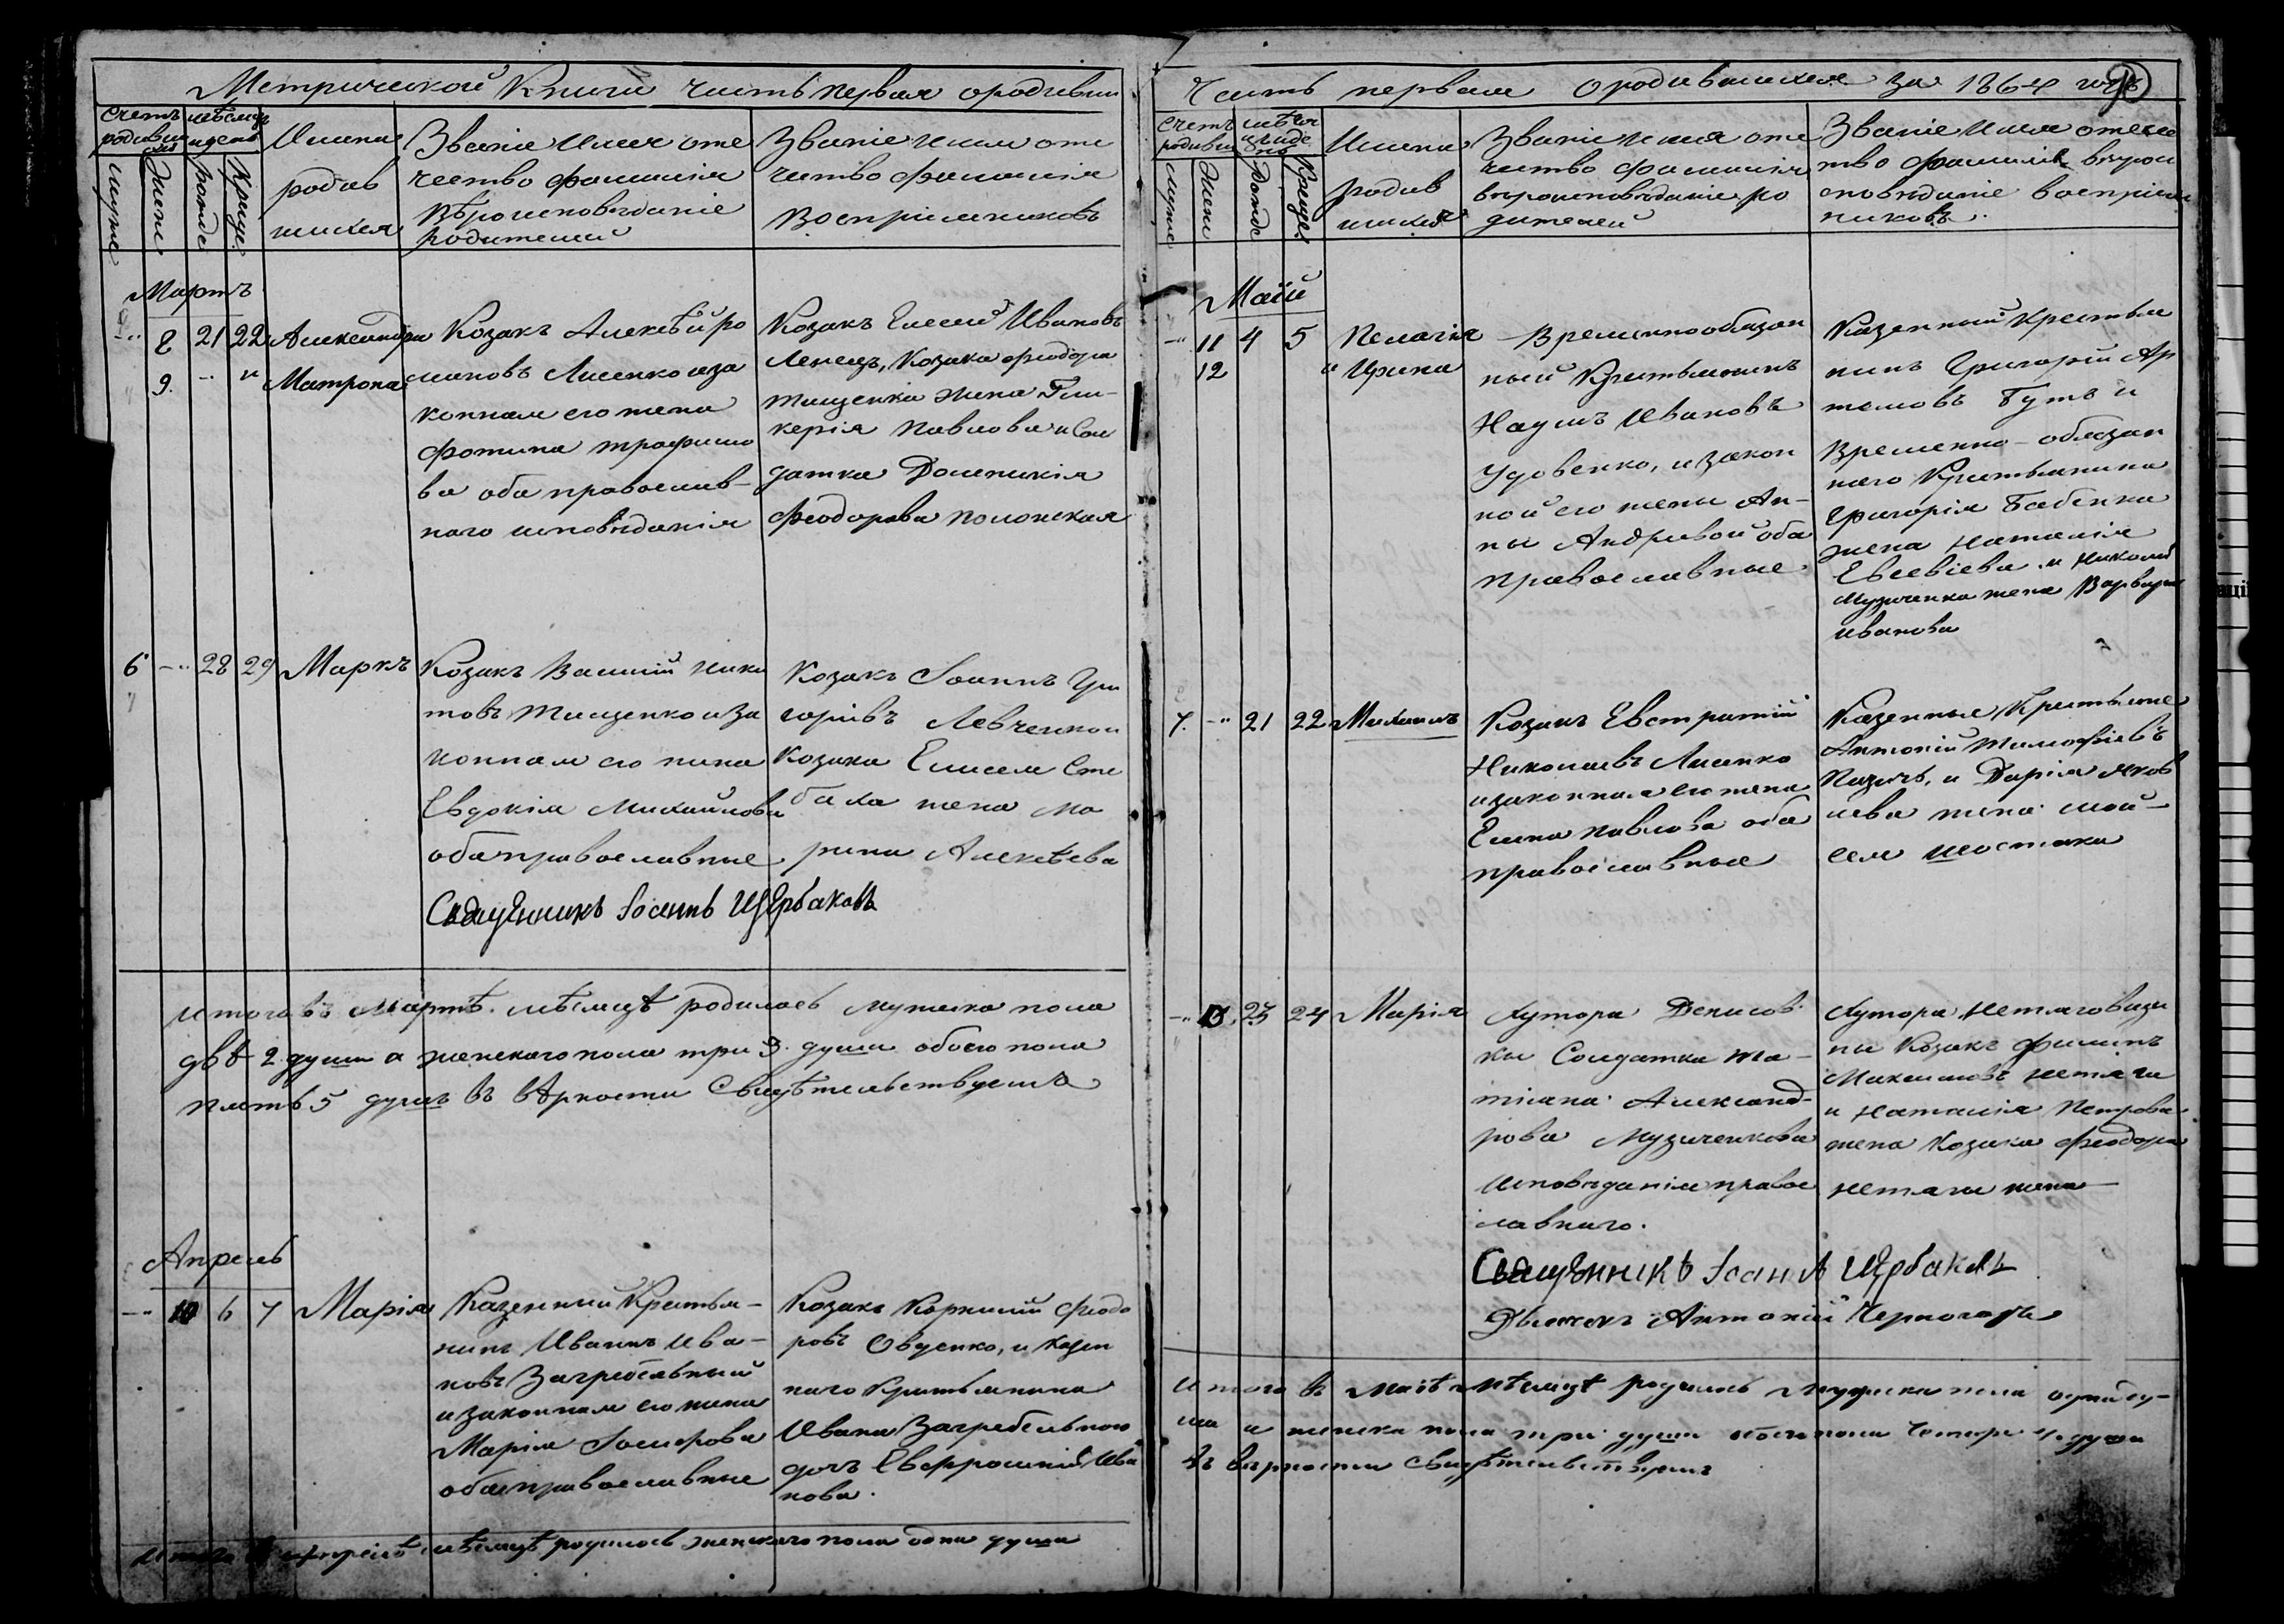 Метрической Книги часть первая ородивши
Счетъ родивш мѣсяцъ и день
Имена родив шихся
Званіе имя оте чество фамилія Вѣроисповѣданіе родителей
Званіе имя оте чество фамилія Воспріемниковъ
муже
жене
рожде
Креще
Мартъ
8 21 22 Александра
9. " Матрона
Козакъ Алексѣй Ро
мановъ Лисенко и за
конная его жена
Фотина Трофимо
ва оба православ-
наго исповѣданія
Козакъ Елесей Ивановъ
Лепецъ, Козака Феодора
Тищенка жена Гли-
керія Павлова и Сол
датка Домникія
Феодорова Полонская
6 28 29 Маркъ
Козакъ Василій Ники
товъ Тищенко и за
конная его жена
Евдокія Михайлова
оба православные
Козакъ Іоаннъ Гри
горіевъ Левченко и
Козака Елисея Сте
баха жена Ма
рина Алексѣева
Священникъ Іоаннъ Щербаковъ
Итого въ Мартѣ мѣсяцѣ родилось мужеска пола
двѣ 2 души а женскаго пола три 3 души обоего пола
пять 5 душъ въ вѣрности Свидѣтельствуемъ
Апрель
10 6 7 Марія
Казенный Крестья-
нинъ Иванъ Ива-
новъ Загребельный
и законная его жена
Марія Іосифова
оба православные
Козакъ Корнилій Феодо
ровъ Овдѣнко, и Казен
наго Крестьянина
Ивана Загребельного
дочь Евфросинія Ива
нова.
Итого въ Апрелѣ мѣсяцѣ родилось женскаго пола одна душа
Часть первая ородившихся за 1864 годъ
Счетъ родивш мѣся ць и де нь
Имена родив шихся
Званіе имя оте чество фамилія вѣроисповѣданіе ро дителей
Званіе имя отече тво фамилія вѣрои сповѣданіе воспріем никовъ.
муже
жен
рожде
Креще
Май
11 4 5 Пелагія
12 " Ирина
Временнообязан
ный Крестьянинъ
Наумъ Ивановъ
Удовенко, и закон
ной его жены Ан-
ны Андреевой оба
православные
Казенный Крестья
нинъ Григорій Ар
темовъ Буть и
Временно-обязан
наго Крестьянина
Григорія Бабенка
жена Наталія
Евсевіева и Николая
Музиченка жена Варвара
Иванова
7. 21 22 Михаилъ
Козакъ Евстратій
Николаевъ Лисенко
и законная его жена
Елена Павлова оба
православные
Казенные Крестьяне
Антоній Тимофѣевъ
и Дарія Яков
лева жена Мой-
сея Шостака
13 23 24 Марія
Хутора Денисов
ки Солдатка Та-
тіана Александ-
рова Музиченкова
исповѣданія право
лавнаго.
Хутора Нетяговщи
ны Козакъ Филипъ
Максимовъ Нетяга
и Наталія Петрова
жена Козака Феодора
Нетяги жена
Священникъ Іоаннъ Щербаковъ
Дьячокъ Антоній Черногоръ
Итого въ Маѣ мѣсяцѣ родилось мужеска пола одна ду-
ша а женска пола три души обоего пола четыре 4 души
въ вѣрности Свидѣтельствуемъ